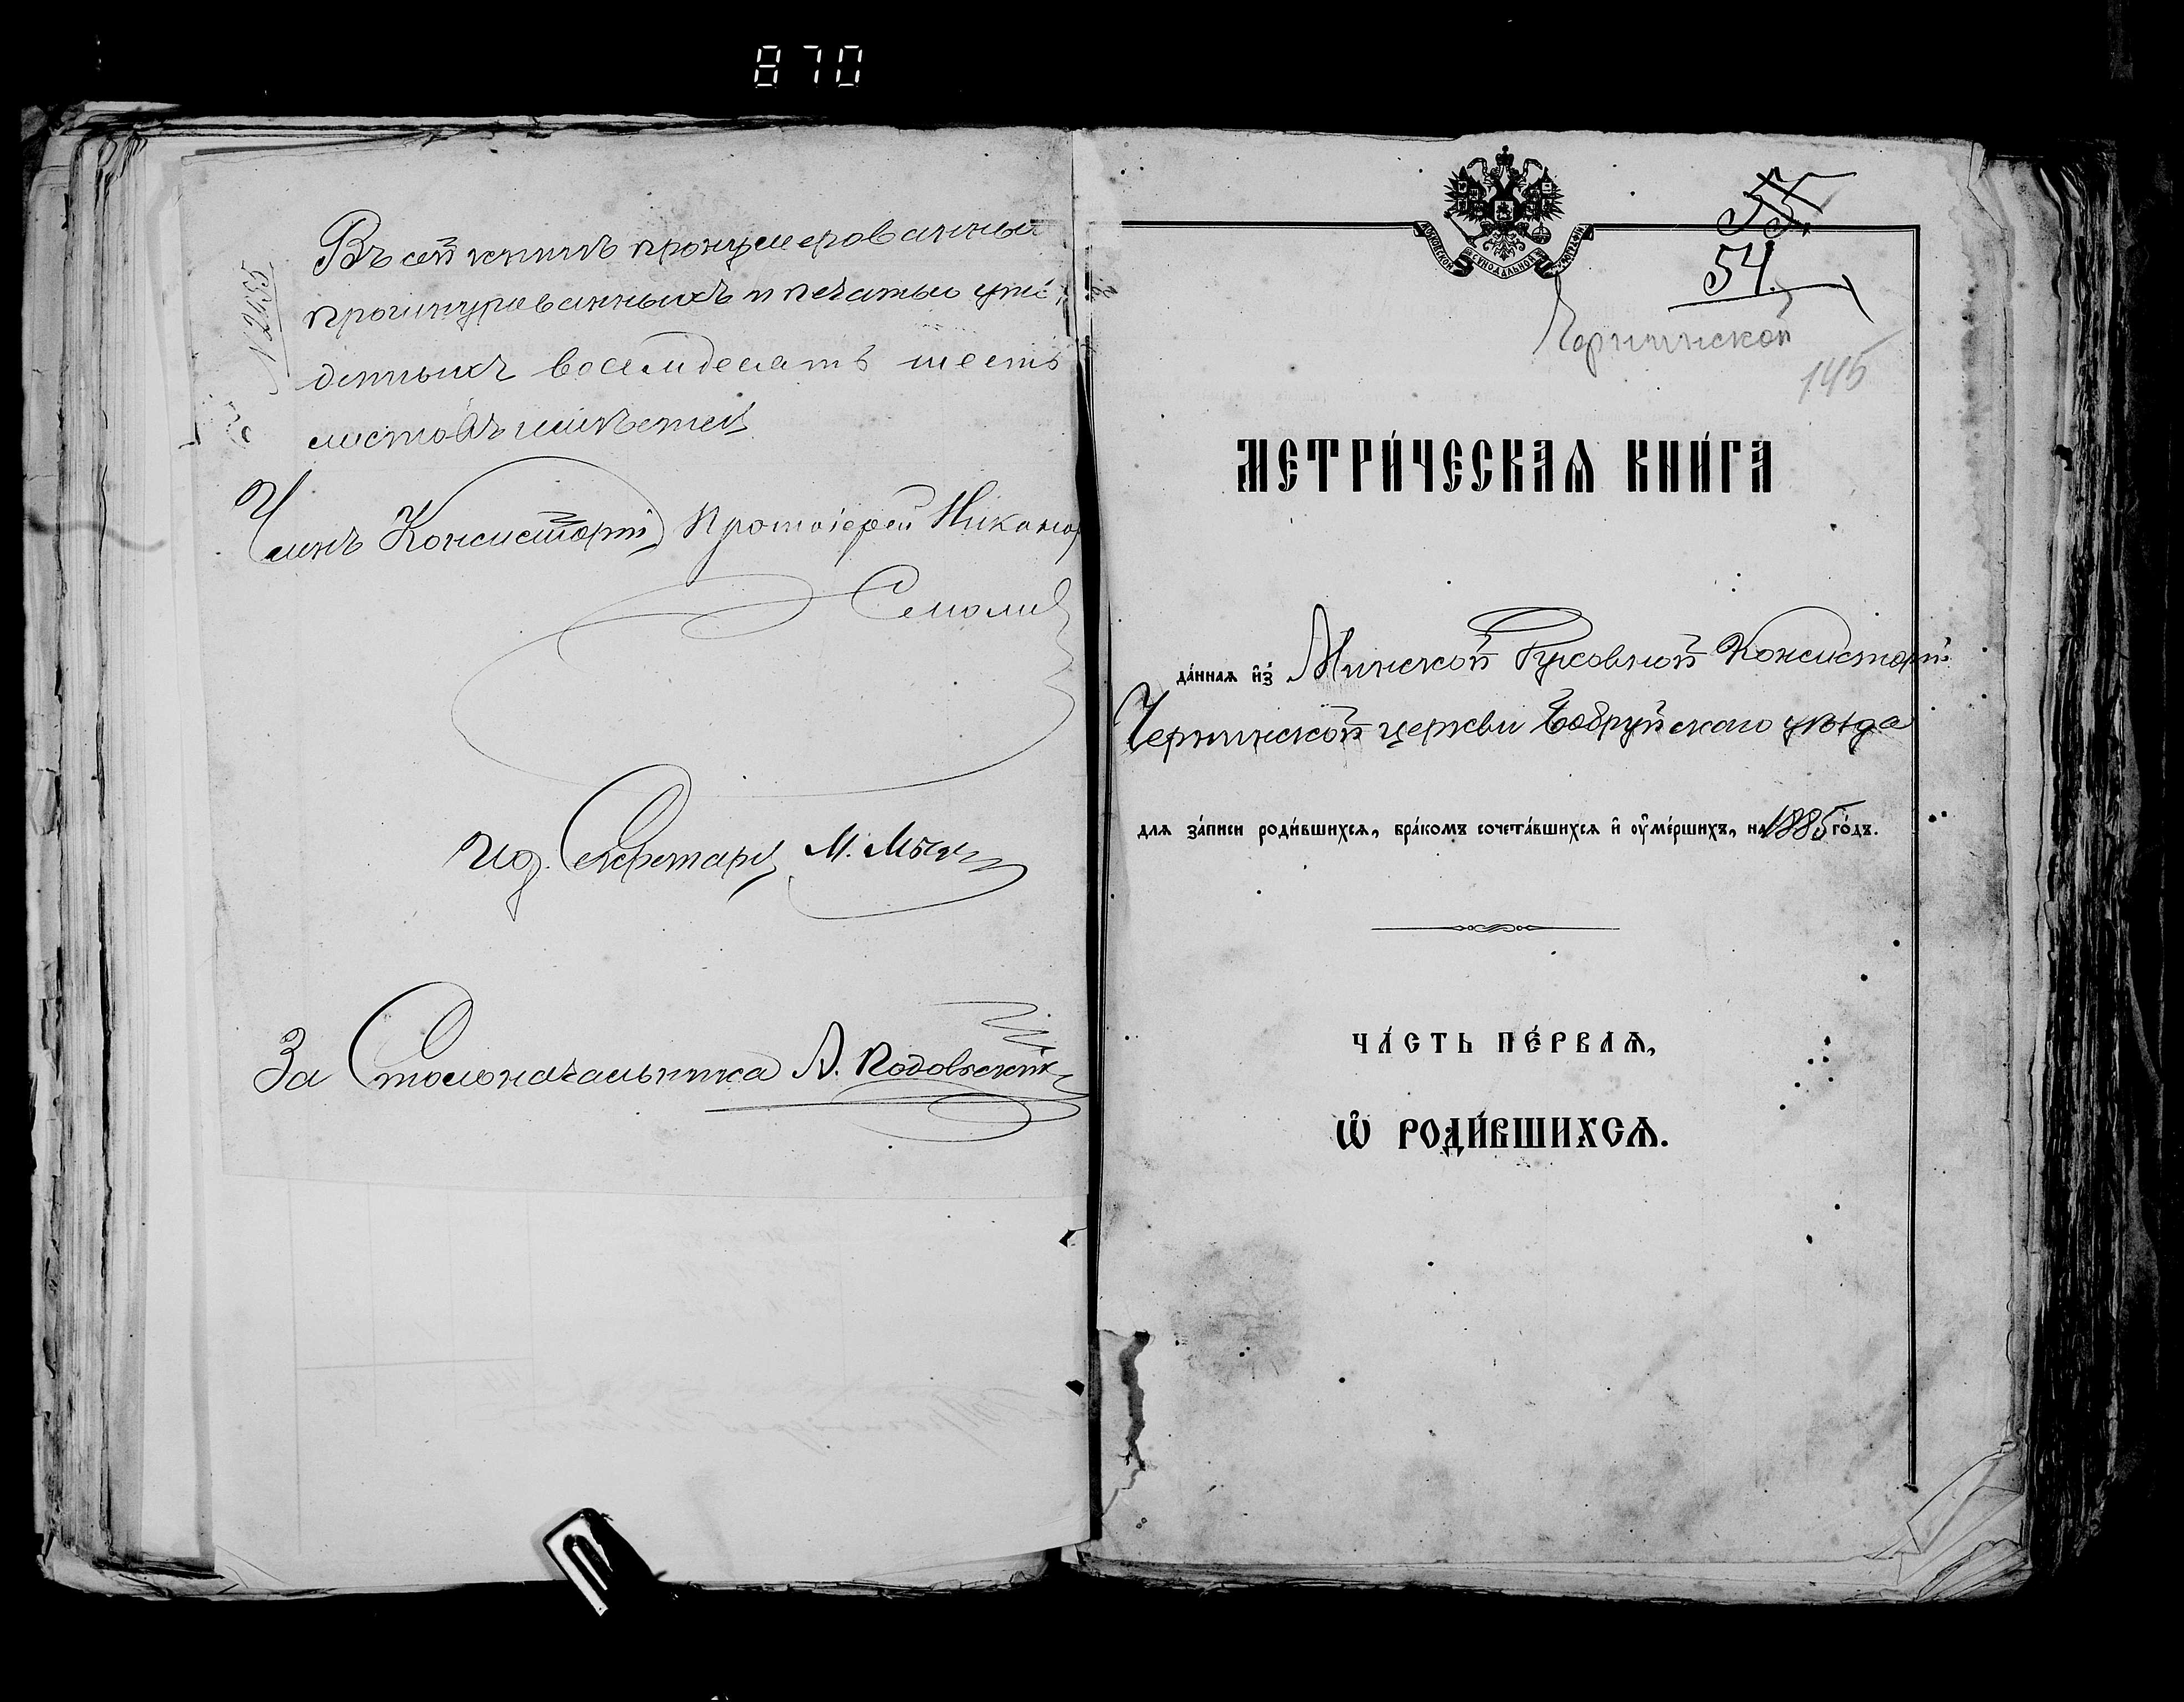 870
№ 2455
Въ сей книгѣ пронумерованныхъ
прошнурованныхъ и печатью утвер
жденныхъ восемдесятъ шесть
листовъ имѣется
Членъ Консисторіи Протоіерей Никанор
Смолич
Ид. Секретаря М.
За Столоначальника А.
МОСКОВСКОЙ СУНОДАЛЬНОЙ ТИПОГРАФІИ
55
54
Чернинской
145
МЕТРИ́ЧЕСКАѦ КНИ́ГА
да́ннаѧ и҆з̾ Минской Духовной Консисторіи
Чернинской церкви Бобруйскаго уѣзда
длѧ за́писи роди́вшихсѧ, бра́комъ сочета́вшихсѧ и҆ оу҆ме́ршихъ, на 1885 го́дъ.
ЧА́СТЬ ПЕ́РВАѦ,
Ѡ҆ РОДИ́ВШИХСѦ.